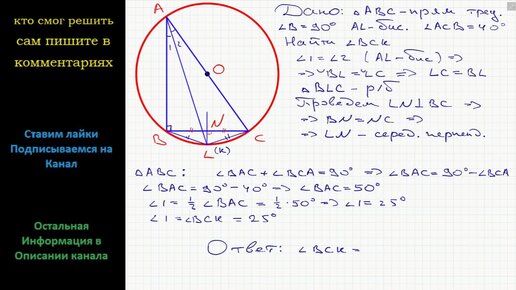 кто смог решить
сам пишите в
комментариях
Ставим лайки
Подписываемся на
Канал
Остальная
Информация в
Описании канала
A
1 2
O
N
B
C
L (K)
Дано: △ABC - прям. треуг.
∠B = 90° AL - бис. ∠ACB = 40°
Найти ∠BCK
∠1 = ∠2 (AL - бис) ⇒
⇒ ◡BL = ◡LC ⇒ LC = BL
△BLC - р/б
Проведем LN ⊥ BC ⇒
⇒ BN = NC ⇒
⇒ LN - серед. перпенд.
△ABC: ∠BAC + ∠BCA = 90° ⇒ ∠BAC = 90° - ∠BCA
∠BAC = 90° - 40° ⇒ ∠BAC = 50°
∠1 = ½ ∠BAC = ½ · 50° ⇒ ∠1 = 25°
∠1 = ∠BCK = 25°
Ответ: ∠BCK =